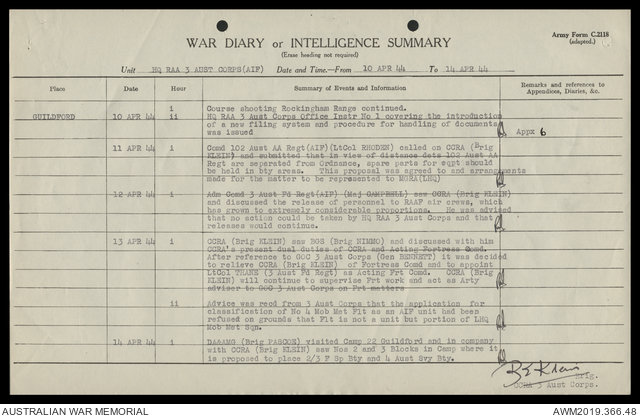 WAR DIARY or INTELLIGENCE SUMMARY
Army Form C.2118
(adapted.)
(Erase heading not required)
Unit HQ RAA 3 AUST CORPS(AIF) Date and Time.—From 10 APR 44 To 14 APR 44
Place Date Hour Summary of Events and Information Remarks and references to Appendices, Diaries, &c.
i Course shooting Rockingham Range continued.
GUILDFORD 10 APR 44 ii HQ RAA 3 Aust Corps Office Instr No 1 covering the introduction
of a new filing system and procedure for handling of documents
was issued Appx 6
11 APR 44 i Comd 102 Aust AA Regt(AIF)(LtCol RHODEN) called on CCRA (Brig
KLEIN) and submitted that in view of distance dets 102 Aust AA
Regt are separated from Ordnance, spare parts for eqpt should
be held in bty areas. This proposal was agreed to and arrangements
made for the matter to be represented to MGRA(LHQ)
12 APR 44 i Adm Comd 3 Aust Fd Regt(AIF) (Maj CAMPBELL) saw CCRA (Brig KLEIN)
and discussed the release of personnel to RAAF air crews, which
has grown to extremely considerable proportions. He was advised
that no action could be taken by HQ RAA 3 Aust Corps and that
releases would continue.
13 APR 44 i CCRA (Brig KLEIN) saw BGS (Brig NIMMO) and discussed with him
CCRA's present dual duties of CCRA and Acting Fortress Comd.
After reference to GOC 3 Aust Corps (Gen BENNETT) it was decided
to relieve CCRA (Brig KLEIN) of Fortress Comd and to appoint
LtCol THANE (3 Aust Fd Regt) as Acting Frt Comd. CCRA (Brig
KLEIN) will continue to supervise Frt work and act as Arty
adviser to GOC 3 Aust Corps on Frt matters
ii Advice was recd from 3 Aust Corps that the application for
classification of No 4 Mob Met Flt as an AIF unit had been
refused on grounds that Flt is not a unit but portion of LHQ
Mob Met Sqn.
14 APR 44 i DAAAMG (Brig PASCOE) visited Camp 22 Guildford and in company
with CCRA (Brig KLEIN) saw Nos 2 and 3 Blocks in Camp where it
is proposed to place 2/3 F Sp Bty and 4 Aust Svy Bty.
B E Klein
Brig.
CCRA 3 Aust Corps.
AUSTRALIAN WAR MEMORIAL
AWM2019.366.48